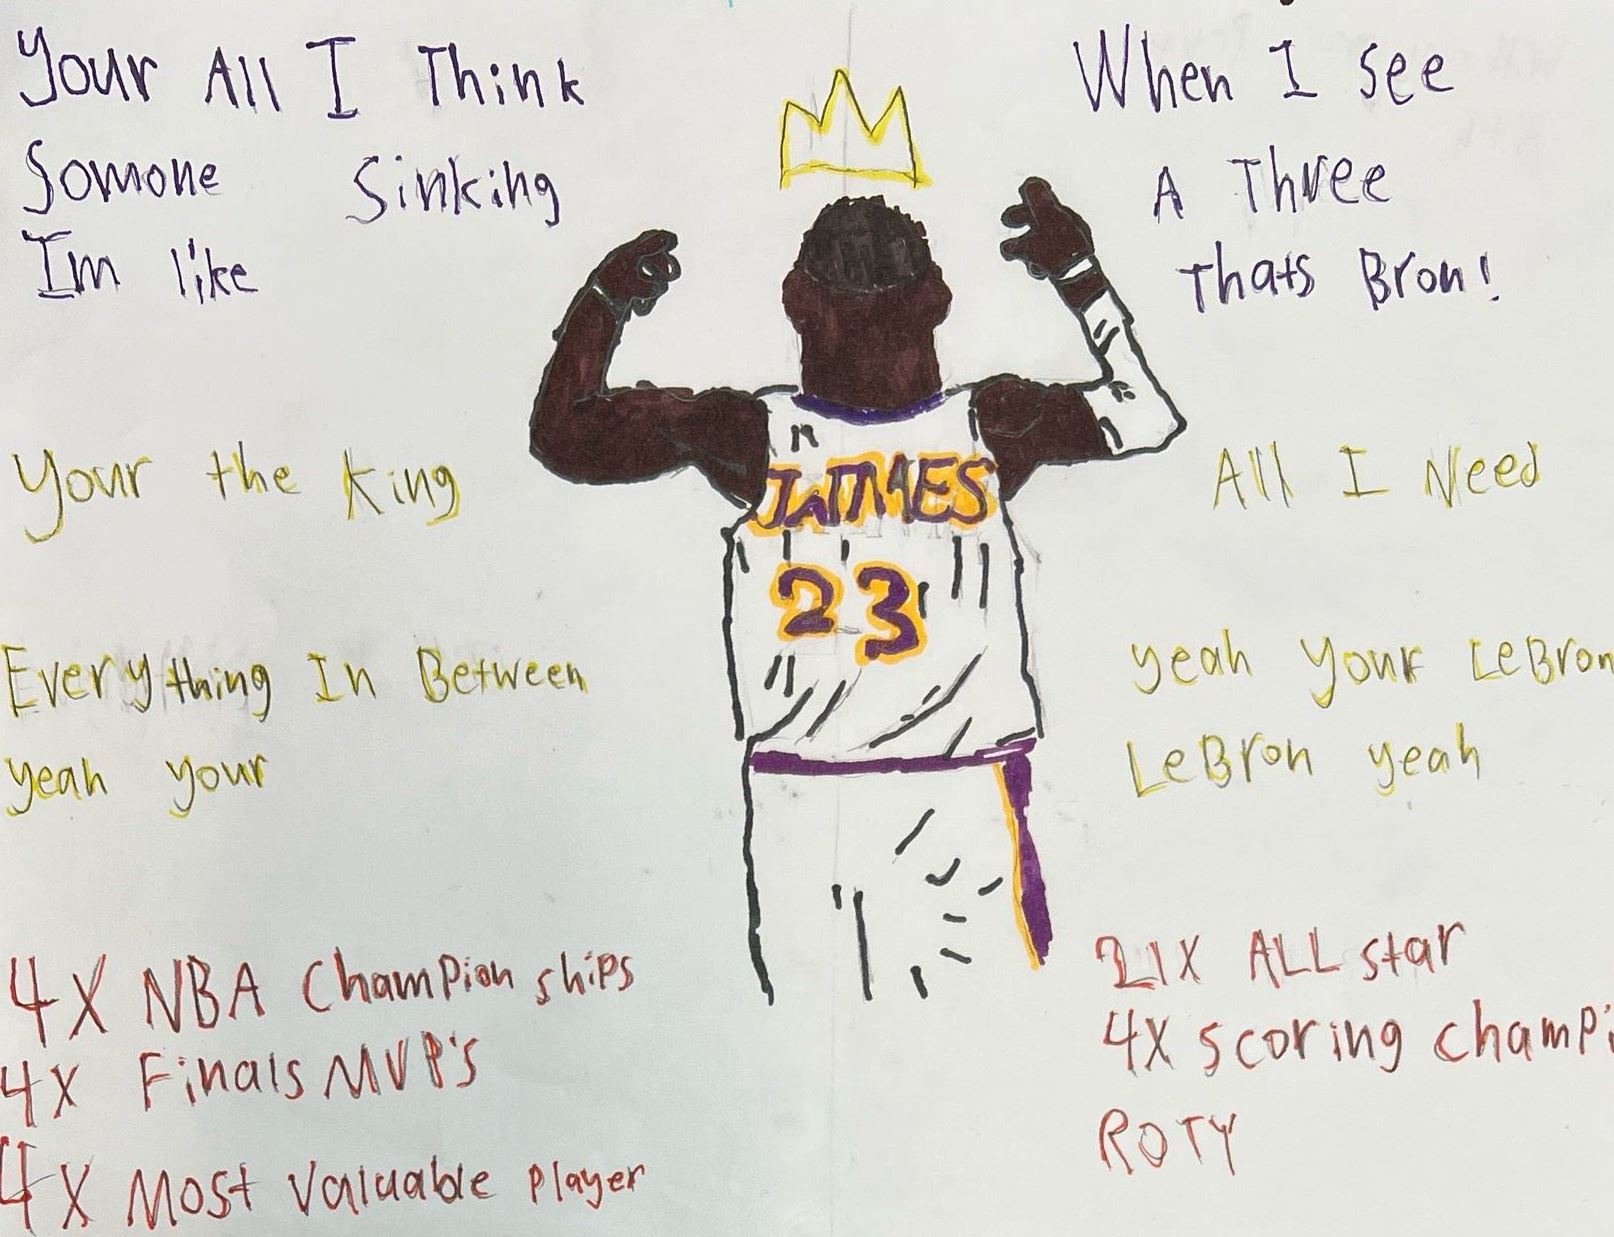 Your All I Think
Somone Sinking
Im like
When I see
A Three
Thats Bron!
JAMES
23
Your the King
All I Need
Everything In Between
yeah your
yeah your LeBron
LeBron yeah
4X NBA Champion ships
4X Finals MVP's
4X Most Valuable Player
21X ALL star
4X scoring champi
ROTY